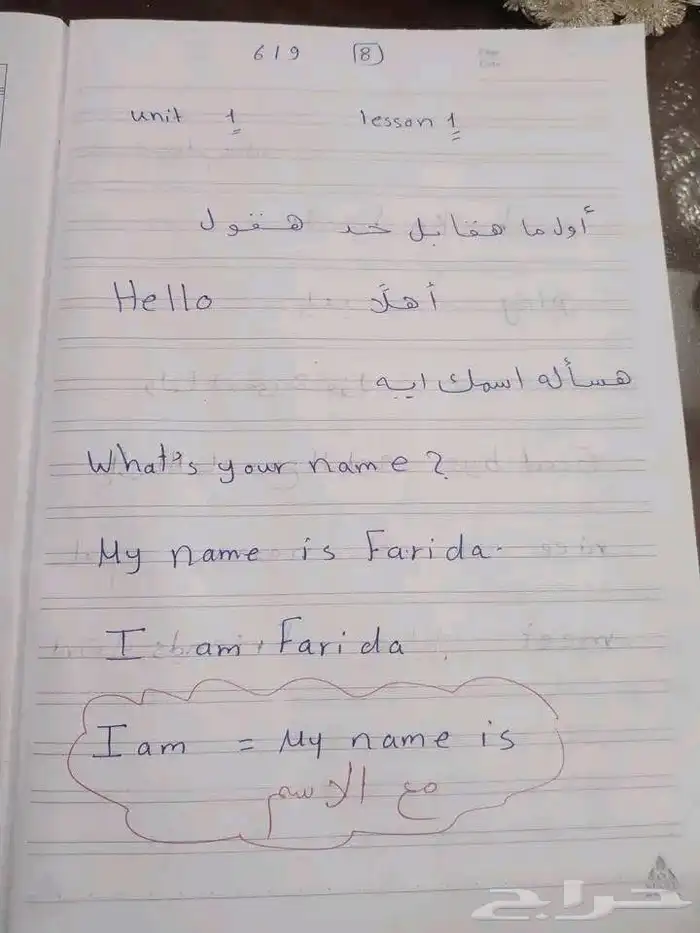 619 8
unit 1 lesson 1
أول ما هقابل حد هقول
Hello أهلاً
هسأله اسمك ايه
What's your name?
My name is Farida.
I am Farida
I am = My name is
مع الاسم
حراج